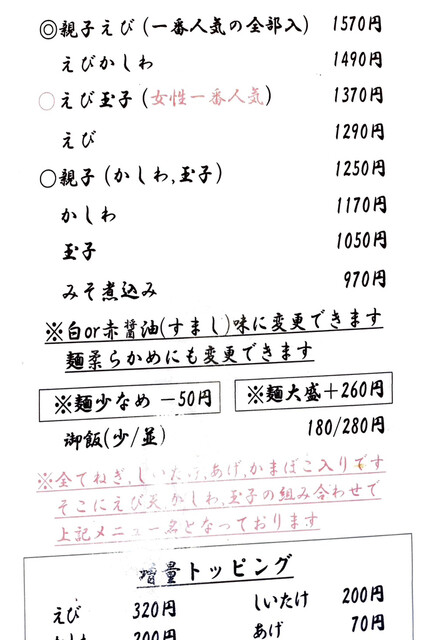 ◎親子えび(一番人気の全部入) 1570円
えびかしわ 1490円
○えび玉子(女性一番人気) 1370円
えび 1290円
○親子(かしわ,玉子) 1250円
かしわ 1170円
玉子 1050円
みそ煮込み 970円
※白or赤醤油(すまし)味に変更できます
麺柔らかめにも変更できます
※麺少なめ －50円 ※麺大盛＋260円
御飯(少/並) 180/280円
※全てねぎ,しいたけ,あげ,かまぼこ入りです
そこにえび天,かしわ,玉子の組み合わせで
上記メニュー名となっております
増量トッピング
えび 320円 しいたけ 200円
かしわ 200円 あげ 70円